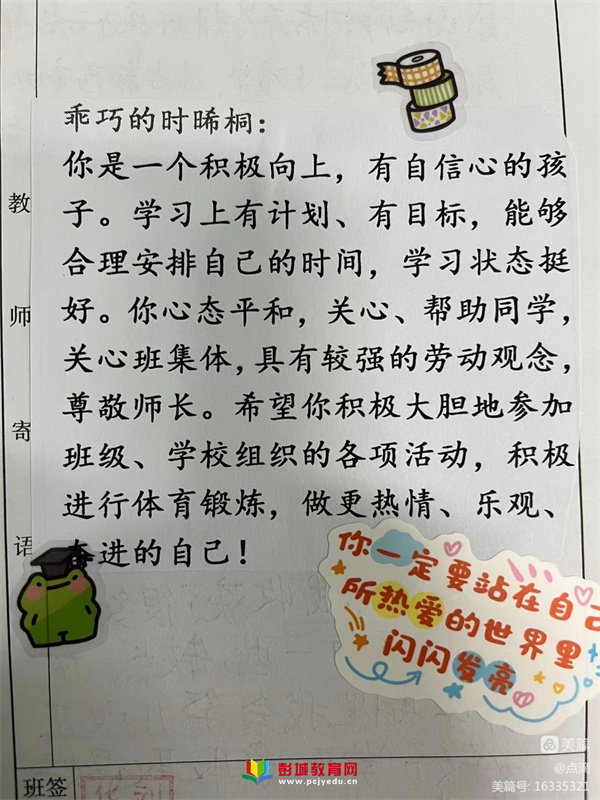 教师寄语
乖巧的时晞桐：
你是一个积极向上，有自信心的孩
子。学习上有计划、有目标，能够
合理安排自己的时间，学习状态挺
好。你心态平和，关心、帮助同学，
关心班集体，具有较强的劳动观念，
尊敬师长。希望你积极大胆地参加
班级、学校组织的各项活动，积极
进行体育锻炼，做更热情、乐观、
奋进的自己！
你一定要站在自己
所热爱的世界里
闪闪发亮
班签
美篇
@点滴
美篇号: 16335321
彭城教育网
www.pcjyedu.cn